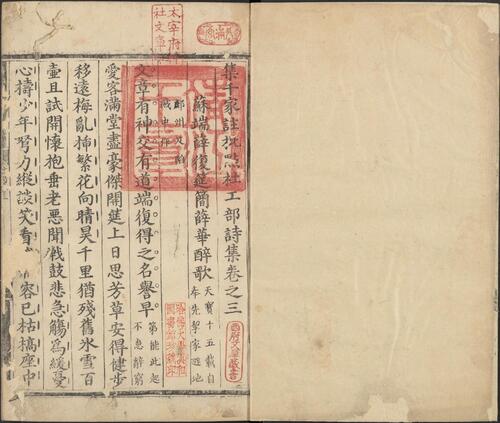 集千家註批點杜工部詩集卷之三
蘇端薛復筵簡薛華醉歌
天寶十五載自
奉先挈家避地
鄜州
文章有神交有道端復得之名譽早
第能此起
不怠辭窮
愛客滿堂盡豪傑開筵上日思芳草安得健步
移遠梅亂揷繁花向晴昊千里猶殘舊氷雪百
壷且試開懷抱垂老惡聞戰鼓悲急觴為緩憂
心擣少年努力縱談笑看 容已枯槁座中
太宰府
社文章
西府文章蔵書